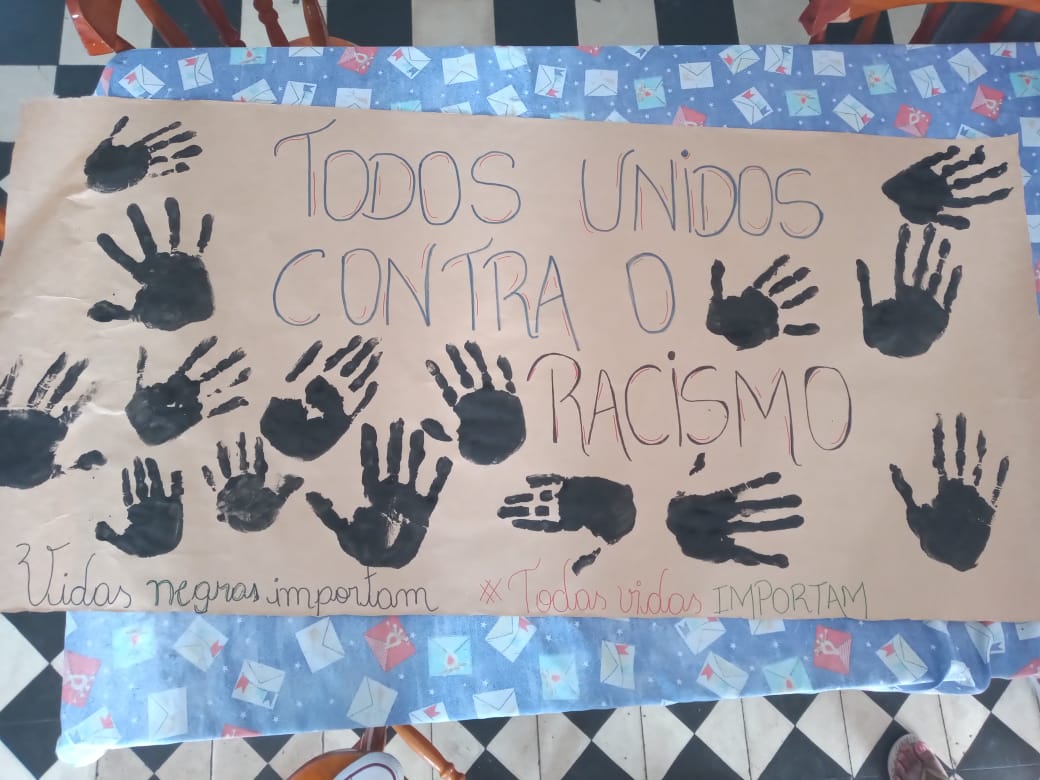 TODOS UNIDOS
CONTRA O
RACISMO
Vidas negras importam #Todas vidas IMPORTAM